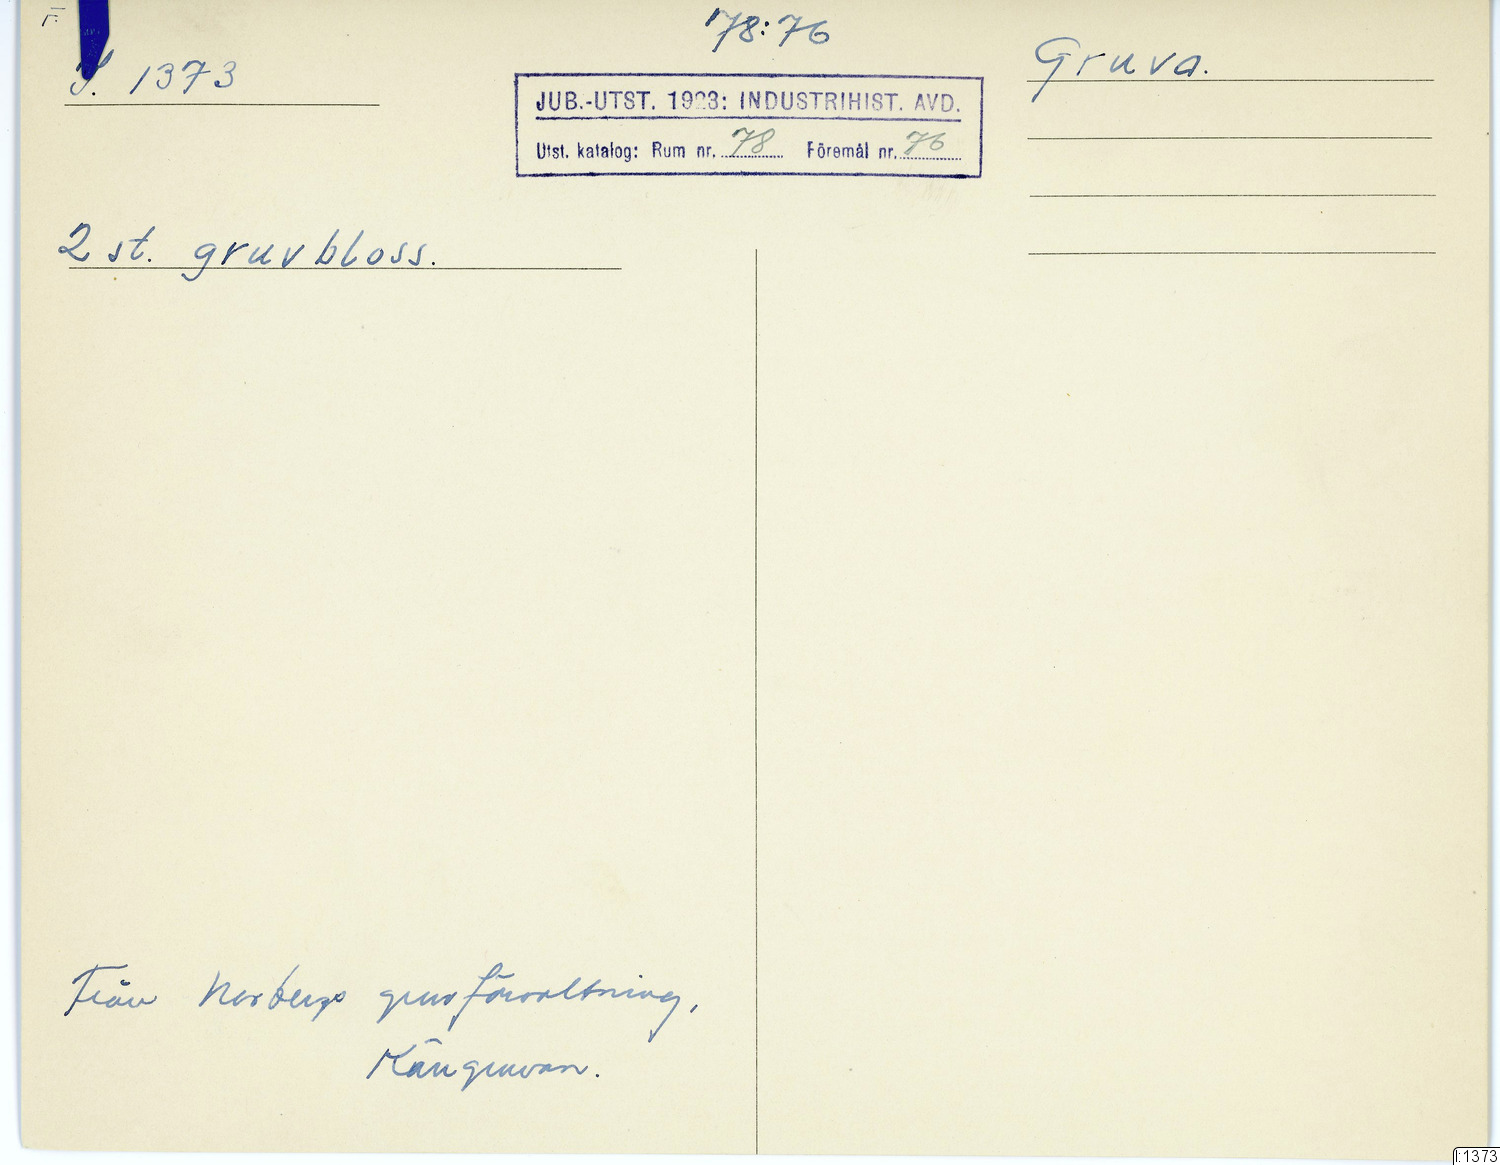 78:76
I. 1373
Gruva.
JUB.-UTST. 1923: INDUSTRIHIST. AVD.
Utst. katalog: Rum nr. 78 Föremål nr. 76
2 st. gruvbloss.
Från Norbergs gruvförvaltning,
Kärrgruvan.
I:1373